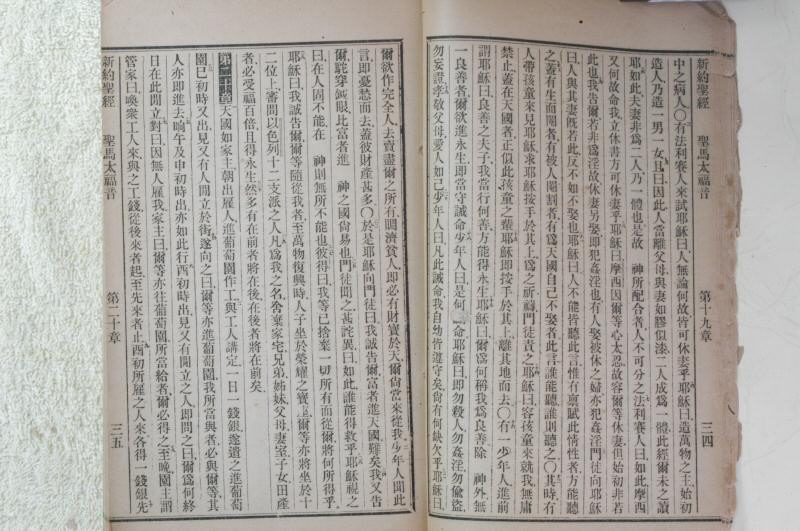 新約聖經 聖馬太福音 第十九章 三四
中之病人〇有法利賽人來試耶穌曰人無論何故皆可休妻乎耶穌曰造萬物之主始初
造人乃造一男一女且曰因此人當離父母與妻如膠似漆二人成爲一體此經爾未之讀
耶如此夫妻非爲二人乃一體也是故 神所配合者人不可分之法利賽人曰如此摩西
又何故命我立休書方可休妻乎耶穌曰摩西因爾等心太忍故容爾等休妻但始初非若
此也我告爾若非爲淫故休妻另娶即犯姦淫也有人娶被休之婦亦犯姦淫門徒向耶穌
曰人與其妻旣若此反不如不娶也耶穌曰人不能皆聽此言惟有禀賦此情性者方能聽
之蓋有生而閹者有被人閹割者有爲天國自己不娶者此言誰能聽誰則聽之〇其時有
人帶孩童來見耶穌求耶穌按手於其上爲之祈禱門徒責之耶穌曰容孩童來就我無庸
禁止蓋在天國者正似此孩童之輩耶穌即按手於其上離其地而去〇有一少年人進前
謂耶穌曰良善之夫子我當行何善方能得永生耶穌曰爾爲何稱我爲良善除 神外無
一良善者爾欲進永生即當守誡命少年人曰是何誡命耶穌曰即勿殺人勿姦淫勿偷盜
勿妄證孝敬父母愛人如己少年人曰凡此誡命我自幼皆遵守矣尙有何缺欠乎耶穌曰
爾欲作完全人去賣盡爾之所有賙濟貧人即必有財寶於天爾尙當來從我少年人聞此
言即憂愁而去蓋彼財產甚多〇於是耶穌向門徒曰我誠告爾富者進天國難矣我又告
爾駝穿鍼眼比富者進 神之國尙易也門徒聞之甚詫異曰如此誰能得救乎耶穌視之
曰在人固不能在 神則無所不能也彼得曰我等已捨棄一切所有而從爾將何所得乎
耶穌曰我誠告爾爾等隨從我者至萬物復興時人子坐於榮耀之寶位爾等亦將坐於十
二位上審問以色列十二支派之人凡爲我之名舍棄家宅兄弟姊妹父母妻室子女田產
者必受福百倍且得永生然多有在前者將在後在後者將在前矣
第二十章 天國如家主朝出雇人進葡萄園作工與工人講定一日一錢銀遂遣之進葡萄
園巳初時又出見又有人閒立於街遂向之曰爾等亦進葡萄園我所當與者必與爾等其
人亦即進去晌午及申初時出亦如此行酉初時出見又有閒立之人即問之曰爾爲何終
日在此閒立對曰因無人雇我家主曰爾等亦往葡萄園所當給者爾必得之至晚園主謂
管家曰喚衆工人來與之工錢從後來者起至先來者止酉初所雇之人來各得一錢銀先
新約聖經 聖馬太福音 第二十章 三五